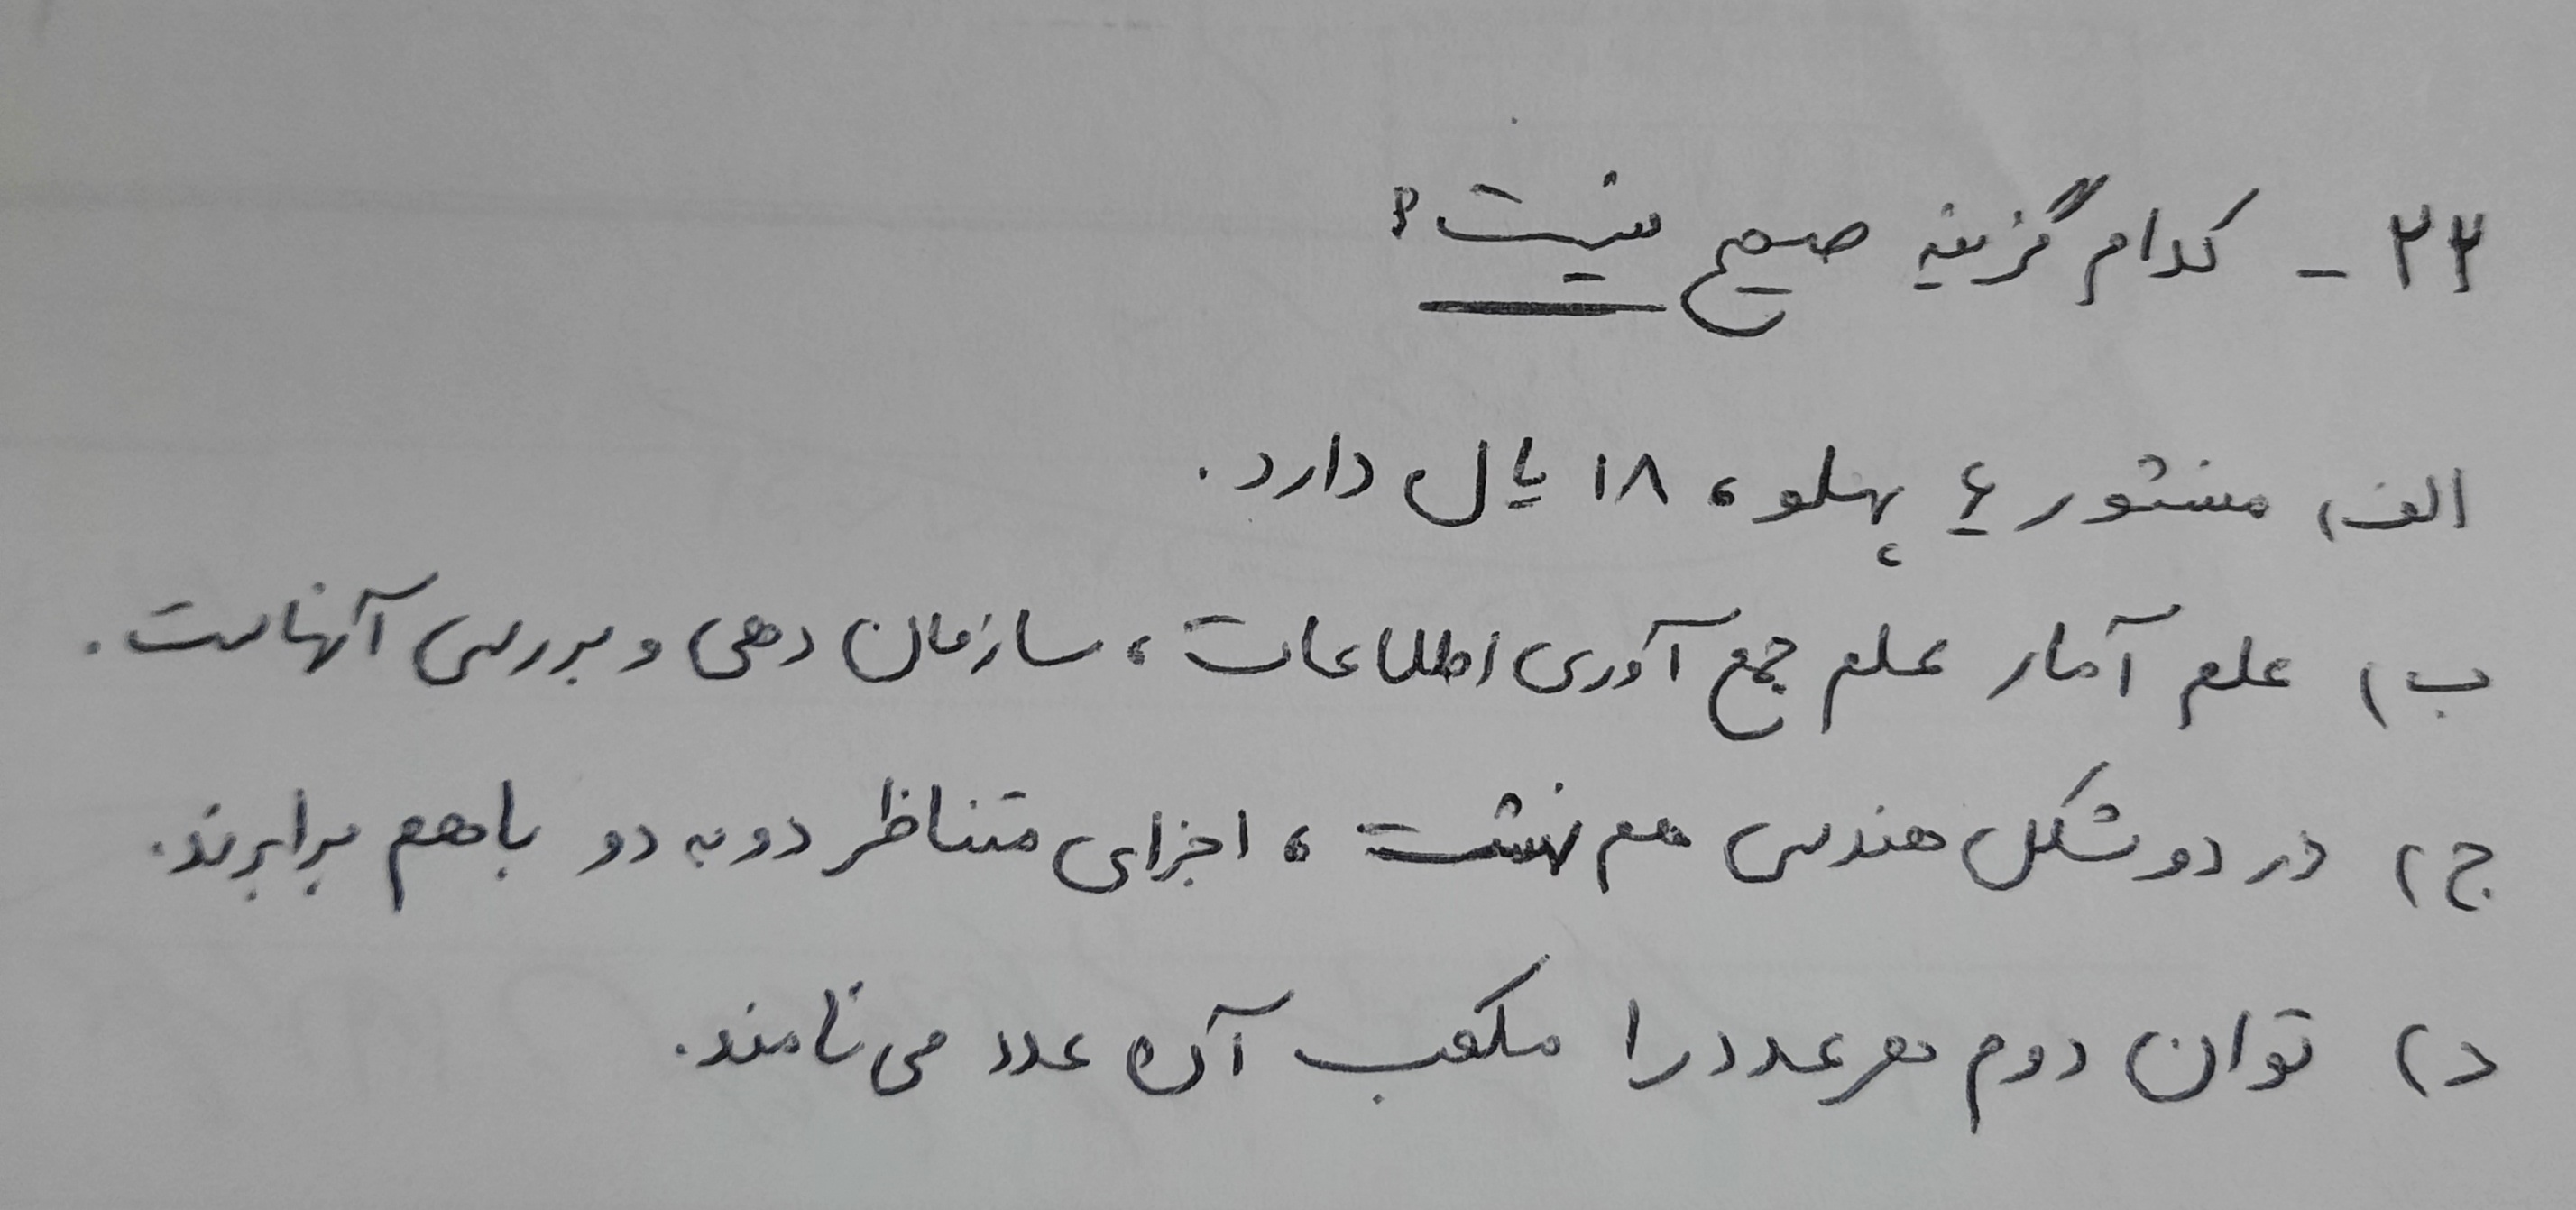 ۲۳ - کدام گزینه صحیح نیست؟
الف) منشور ۶ پهلو، ۱۸ یال دارد.
ب) علم آمار علم جمع آوری اطلاعات، سازمان دهی و بررسی آنهاست.
ج) در دو شکل هندسی هم نهشت، اجزای متناظر دو به دو با هم برابرند.
د) توان دوم هر عدد را مکعب آن عدد می نامند.